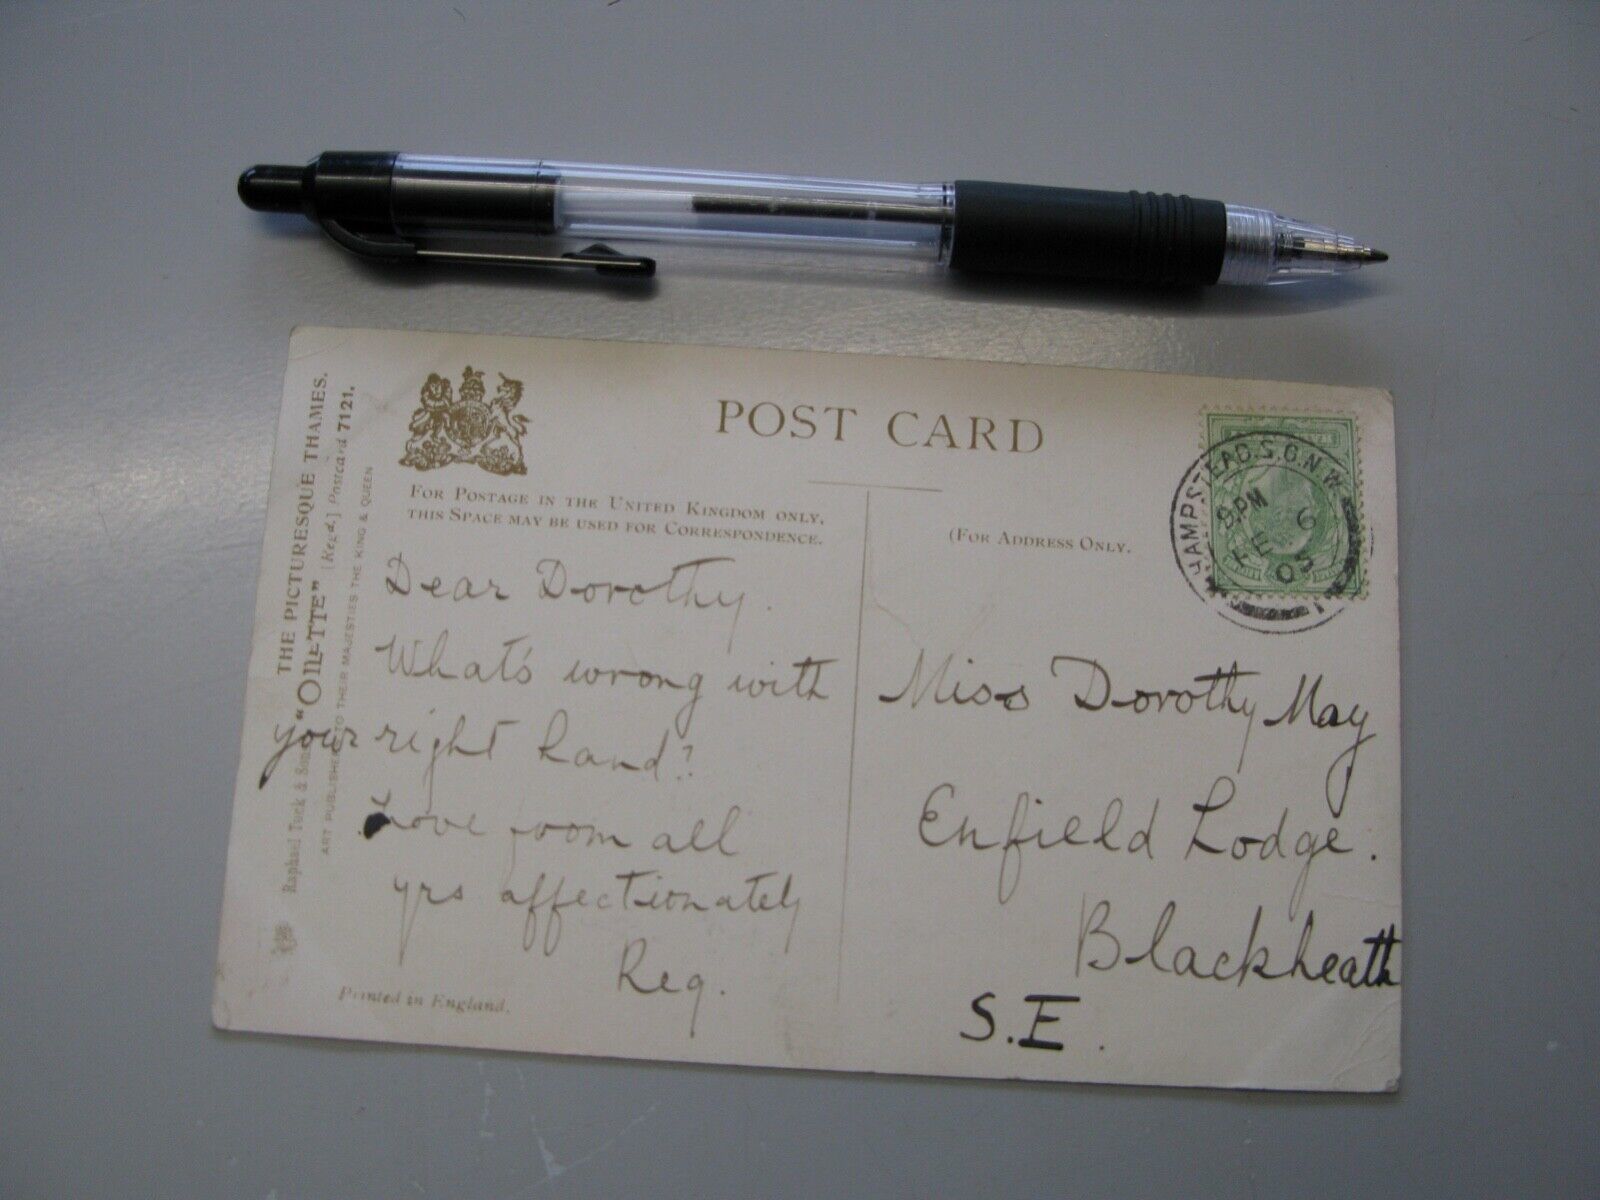 THE PICTURESQUE THAMES.
"OILETTE" [Regd.] Postcard 7121.
Raphael Tuck & Sons
ART PUBLISHERS TO THEIR MAJESTIES THE KING & QUEEN
POST CARD
FOR POSTAGE IN THE UNITED KINGDOM ONLY,
THIS SPACE MAY BE USED FOR CORRESPONDENCE.
(FOR ADDRESS ONLY.
HAMPSTEAD.S.O.N.W.
8.PM
FE 6
05
Dear Dorothy.
What's wrong with
your right hand?
Love from all
yrs affectionately
Reg.
Printed in England.
Miss Dorothy May
Enfield Lodge.
Blackheath
S.E.